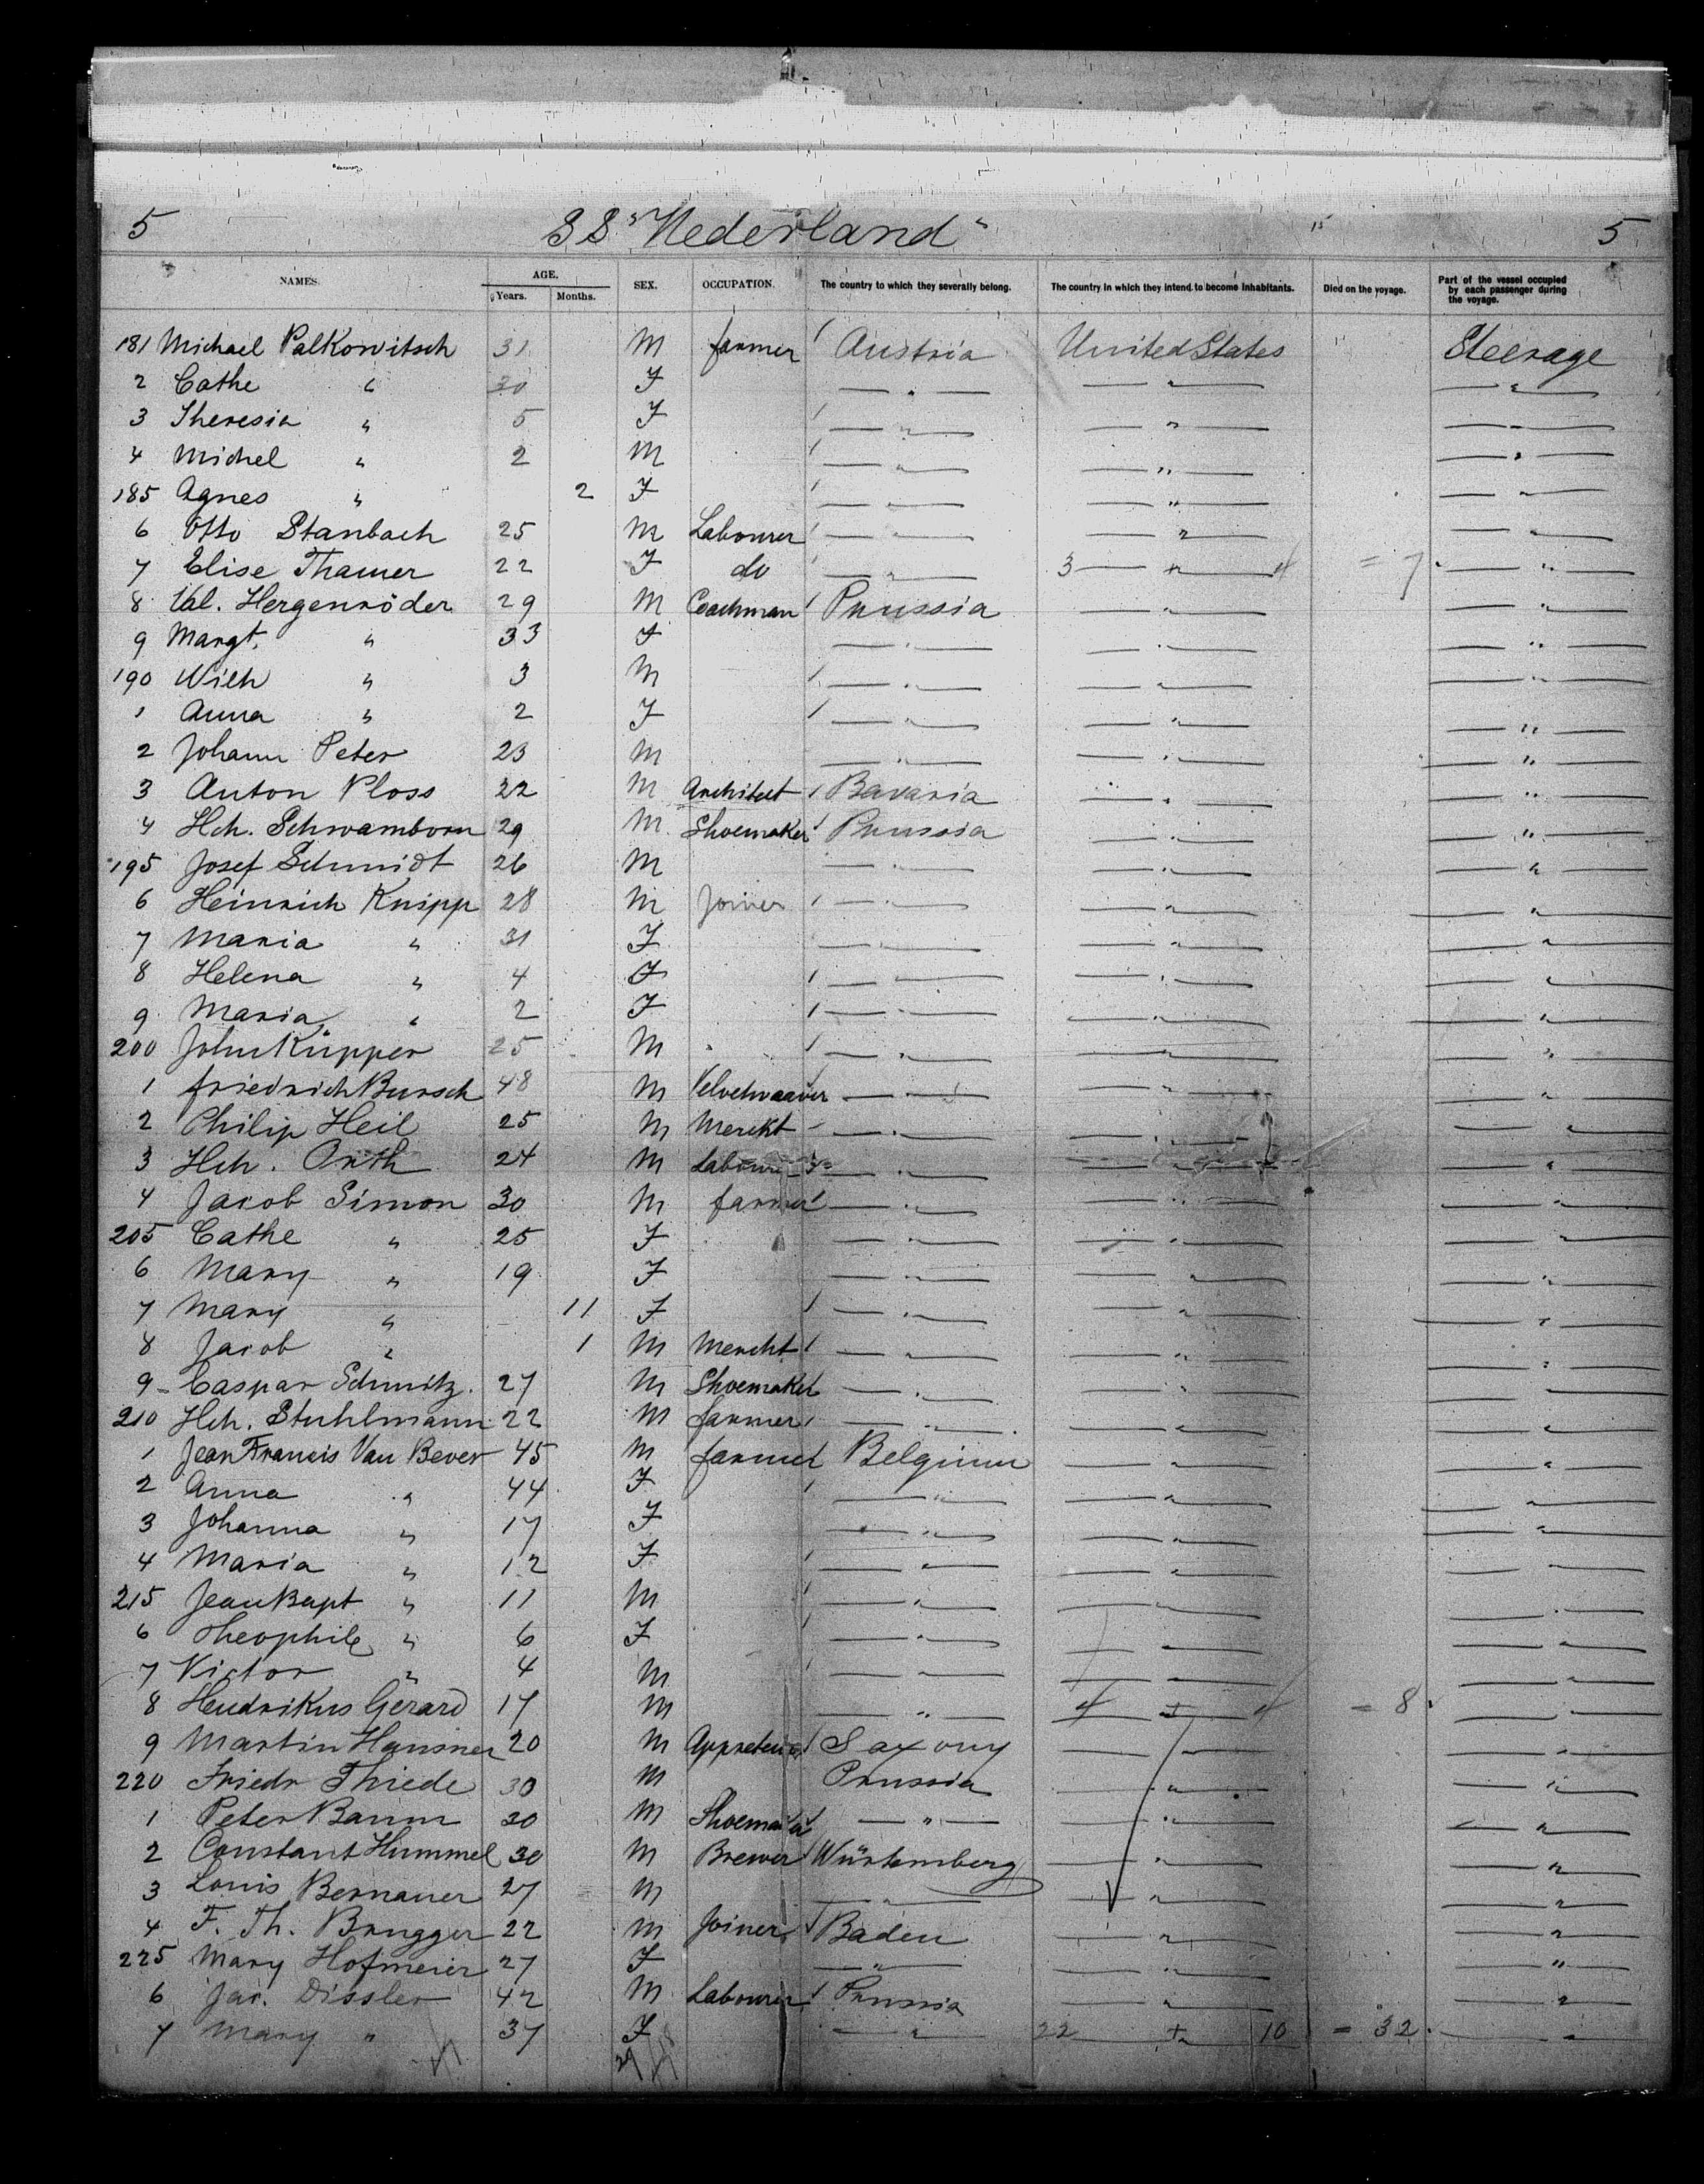 5 SS "Nederland" 15 5
NAMES. AGE. Years. Months. SEX. OCCUPATION. The country to which they severally belong. The country in which they intend to become inhabitants. Died on the voyage. Part of the vessel occupied by each passenger during the voyage.
181 Michael Palkowitsch 31 M farmer Austria United States Steerage
2 Cathe " 30 F " " "
3 Theresia " 5 F " " "
4 Michel " 2 M " " "
185 Agnes " 2 F " " "
6 Otto Stanbach 25 M Labourer " " "
7 Elise Thamer 22 F do " 3 + 4 = 7 "
8 Val. Hergenröder 29 M Coachman Prussia " "
9 Margt. " 33 F " " "
190 Wilh " 3 M " " "
1 Anna " 2 F " " "
2 Johann Peter 23 M " " "
3 Anton Ploss 22 M Architect Bavaria " "
4 Hch. Schwamborn 29 M Shoemaker Prussia " "
195 Josef Schmidt 26 M " " "
6 Heinrich Knipp 28 M Joiner " " "
7 Maria " 31 F " " "
8 Helena " 4 F " " "
9 Maria " 2 F " " "
200 John Küpper 25 M " " "
1 Friedrich Bursch 48 M Velvetweaver " " "
2 Philip Heil 25 M Mercht " " "
3 Hch. Orth 24 M Labourer " " "
4 Jacob Simon 30 M farmer " " "
205 Cathe " 25 F " " "
6 Mary " 19 F " " "
7 Mary " 11 F " " "
8 Jacob " 1 M Mercht " " "
9 Caspar Schmitz. 27 M Shoemaker " " "
210 Hch. Stuhlmann 22 M farmer " " "
1 Jean Francis Van Bever 45 M farmer Belgium " "
2 Anna " 44 F " " "
3 Johanna " 17 F " " "
4 Maria " 12 F " " "
215 Jean Bapt " 11 M " " "
6 Theophile " 6 F " " "
7 Victor " 4 M " " "
8 Hendrikus Gérard 17 M " 4 + 4 = 8 "
9 Martin Hansner 20 M Saxony " "
220 Friedr Thiede 30 M Prussia " "
1 Peter Baum 20 M Shoemaker " " "
2 Constant Hummel 30 M Brewer Würtemberg " "
3 Louis Bernauer 27 M " " "
4 F. Th. Brugger 22 M Joiner Baden " "
225 Mary Hofmeier 27 F " " "
6 Jac. Dissler 42 M Labourer Prussia " "
7 Mary " 37 F " 22 + 10 = 32 "